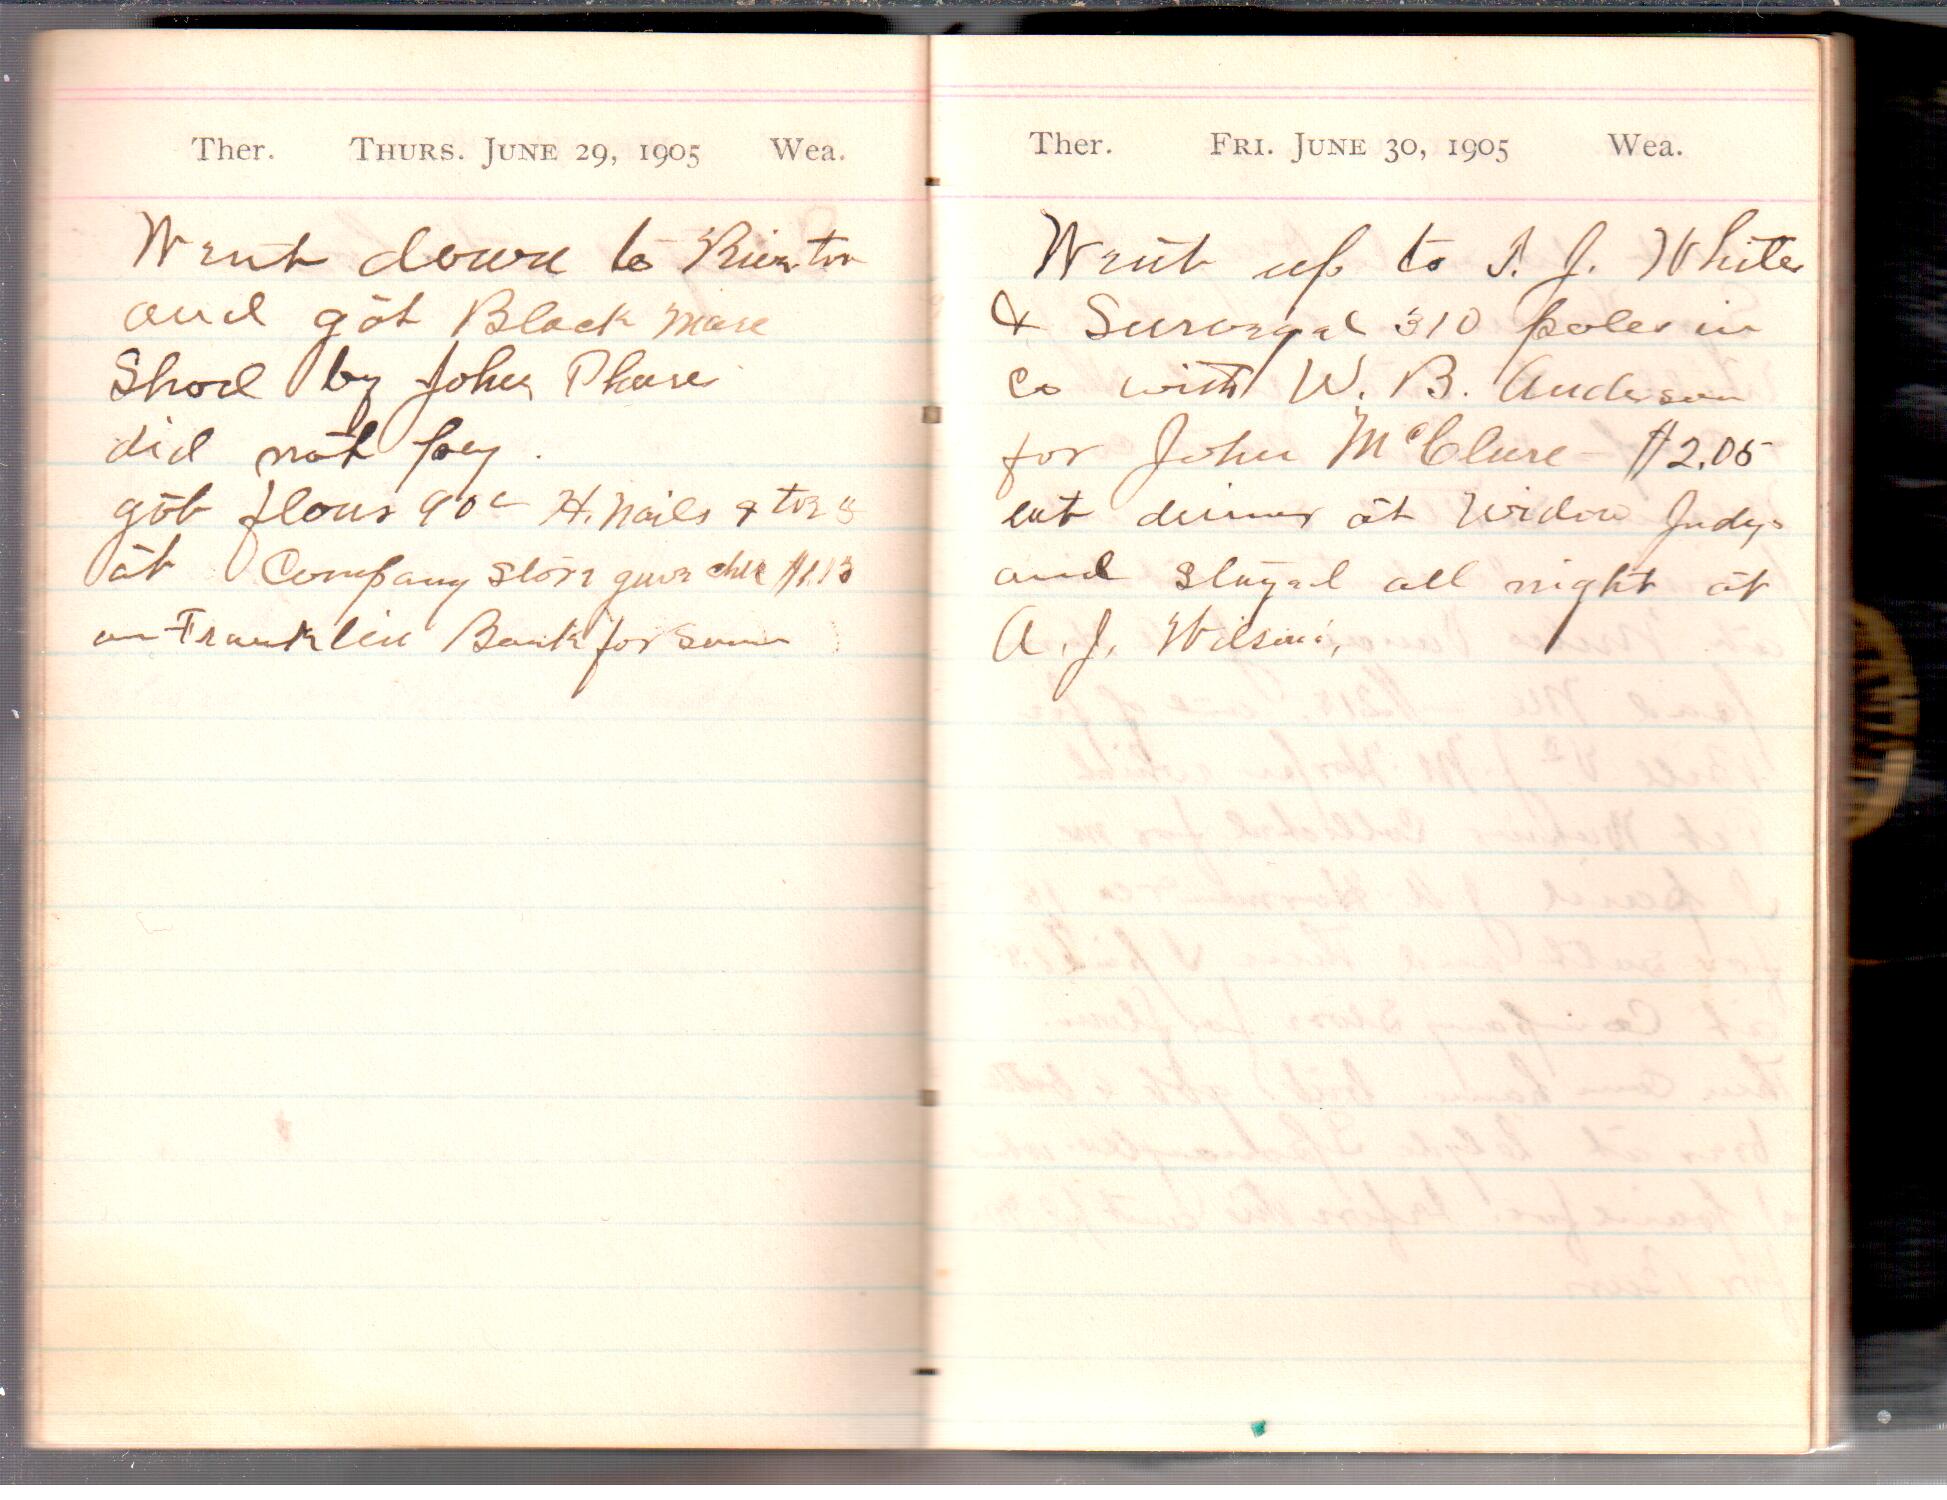 Ther. THURS. JUNE 29, 1905 Wea.
Went down to Riverton
and got Black Mare
Shod by John Phares
did not pay.
got flour 90c H. Nails &
at Company Store gave chk $1.13
on Franklin Bank for same
Ther. FRI. JUNE 30, 1905 Wea.
Went up to J. White
& Surveyed 310 poles in
co with W. B. Anderson
for John McClure - $2.05
eat dinner at Widow Judys
and stayed all night at
A. J. Wilsons,